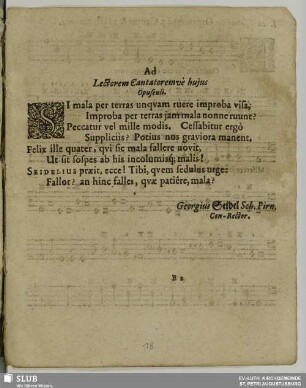 Ad
Lectorem Cantatoremvè hujus
Opusculi.
SI mala per terras unqvam ruere improba visa;
Improba per terras jam mala nonne ruunt?
Peccatur vel mille modis. Cessabitur ergò
Suppliciis? Potius nos graviora manent.
Felix ille quater, qvi sic mala fallere novit,
Ut sit sospes ab his incolumisq; malis!
SEIDELIUS præit, ecce! Tibi, qvem sedulus urge:
Fallor? an hinc falles, qvæ patiêre, mala?
Georgius Seidel Sch. Pirn.
Con-Rector.
B 2
SLUB
Wir führen Wissen.
EV.-LUTH. KIRCHGEMEINDE
ST. PETRI AUGUSTUSBURG